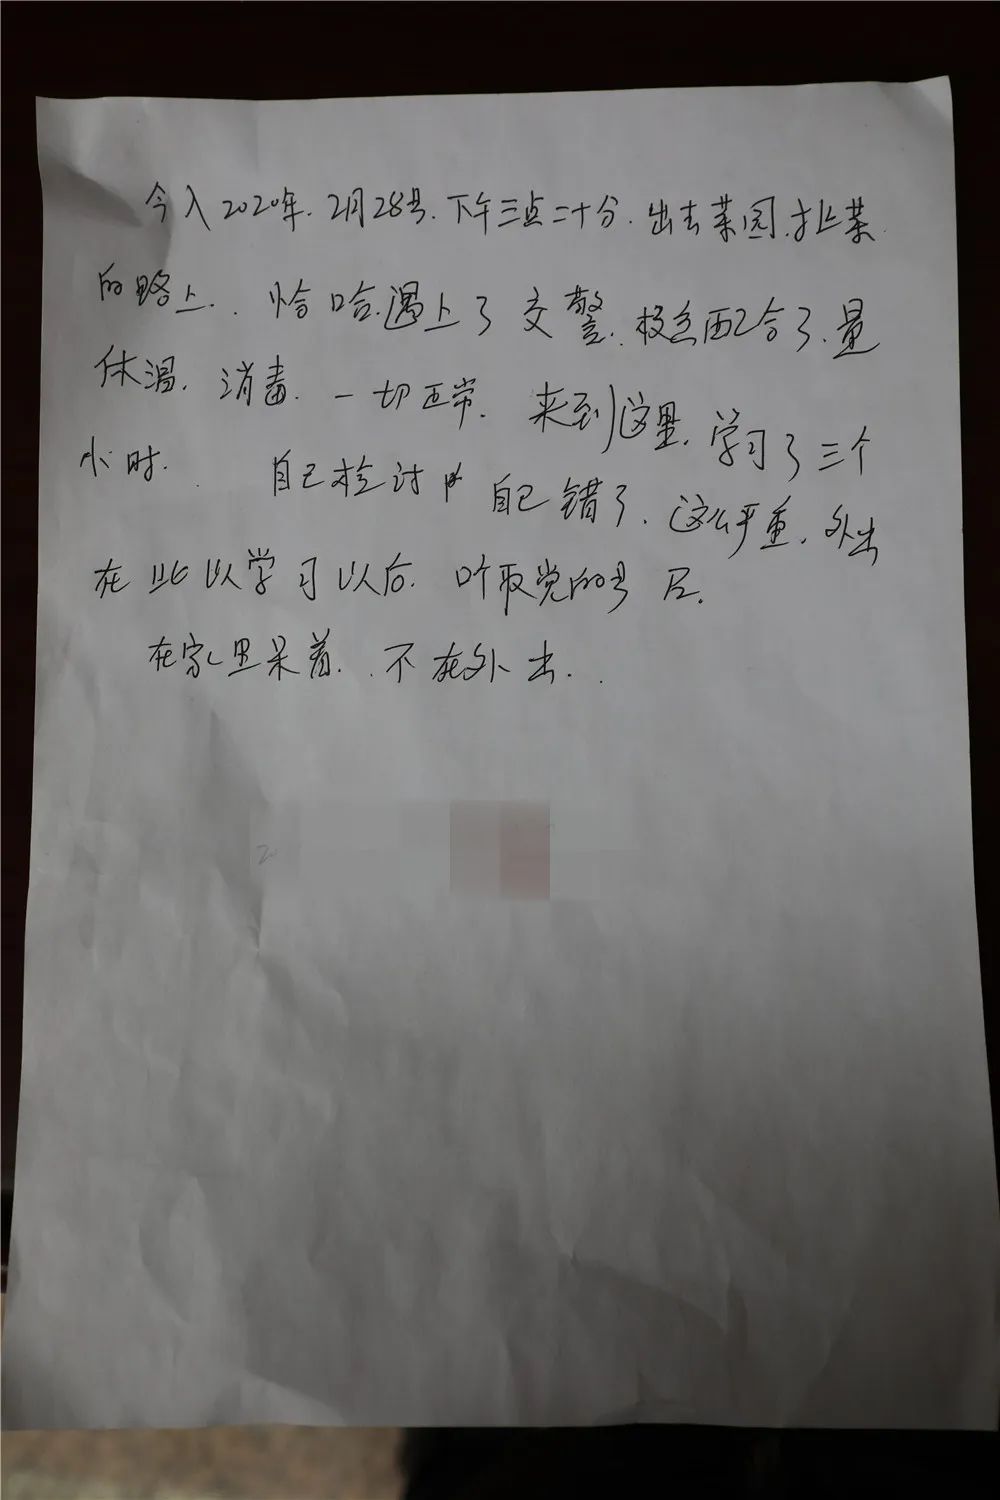 今入2020年.2月28号.下午三点二十分.出去菜园.扯菜
的路上.恰哈.遇上了交警.极色配合了.量
体温.消毒.一切正常.来到这里.学习了三个
小时.自己检讨 自己错了.这么严重.外出
在此以学习以后.听取党的号
在家里呆着.不在外出.